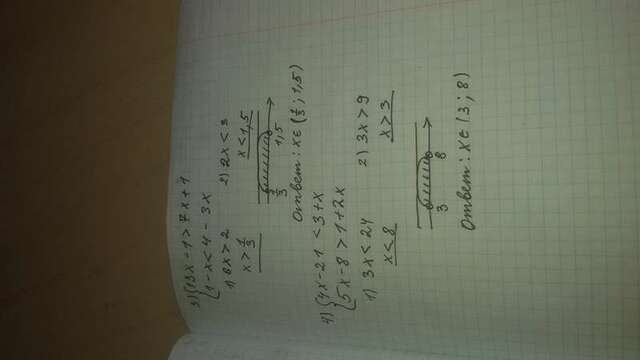 3) {13x-1>7x+1
{1-x<4-3x
1) 6x>2 2) 2x<3
x>1/3 x<1,5
1/3 1,5
Ответ: x∈(1/3; 1,5)
4) {4x-21<3+x
{5x-8>1+2x
1) 3x<24 2) 3x>9
x<8 x>3
3 8
Ответ: x∈(3; 8)